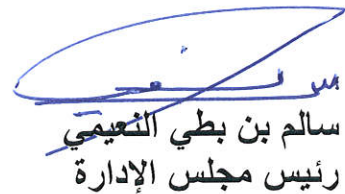 سالم بن بطي النعيمي
رئيس مجلس الإدارة